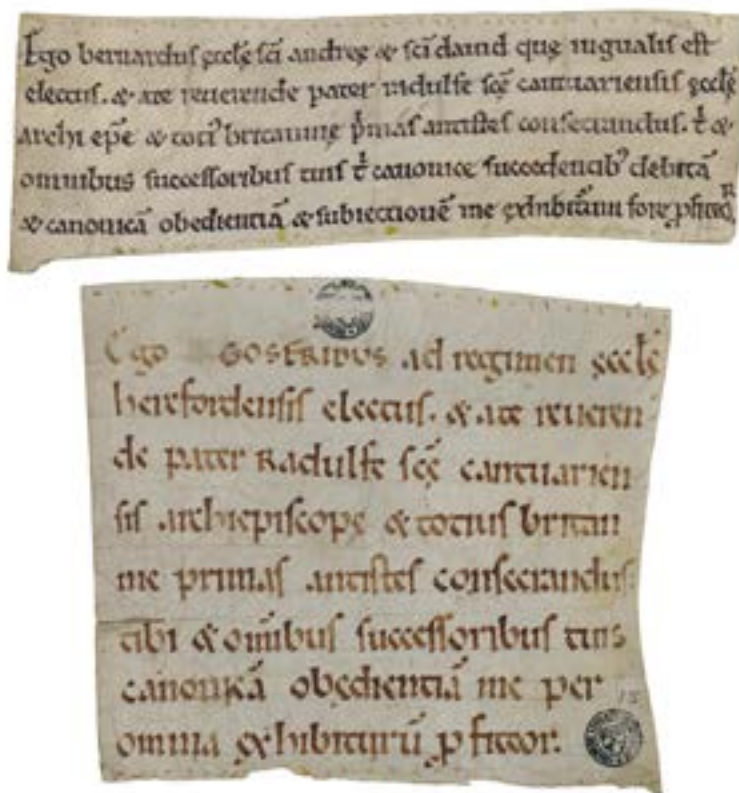 Ego bernardus ęcclę sci andreę & sci dauid quę in gualis est
electus. & a te reuerende pater radulfe scę cantuariensis ęcclę
archi epe & toti' britannię p'mas antistes consecrandus. t' &
omnibus successoribus tuis t' canonice succedentib' debitā
& canonicā obedientiā & subiectionē me exhibitū fore pfiteoR
Ego GOSFRIDUS ad regimen ęcclę
herefordensis electus. & a te reueren
de pater Radulfe scę cantuarien
sis archiepiscopę & totius britan
nię primas antistes consecrandus:
tibi & omībus successoribus tuis
canonicā obędientiā me per
omnia ęxhibiturū pfiteor.
15